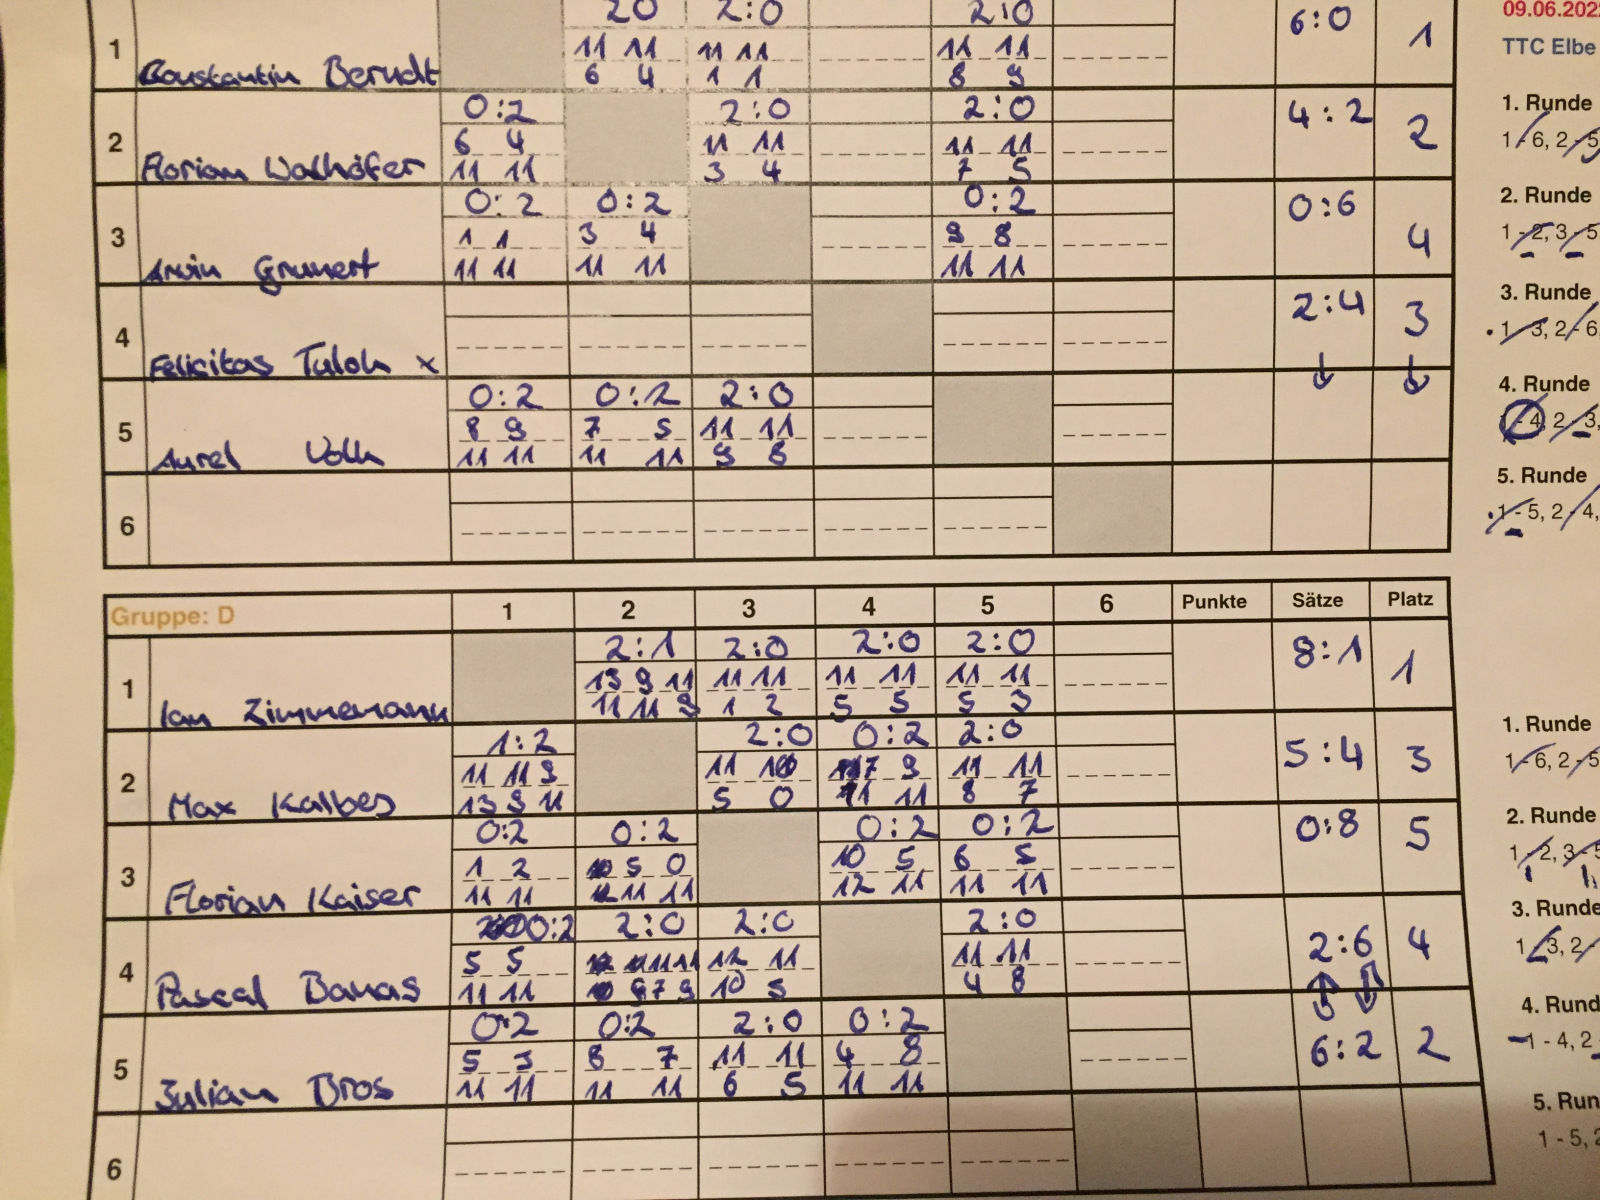 2 0 2:0 2:0 6:0 1
1 11 11 11 11 11 11
Constantin Berndt 6 4 1 1 8 9
0:2 2:0 2:0 4:2 2
2 6 4 11 11 11 11
Florian Walhöfer 11 11 3 4 7 5
0:2 0:2 0:2 0:6 4
3 1 1 3 4 9 8
Arvin Grunert 11 11 11 11 11 11
2:4 3
4
Felicitas x
0:2 0:2 2:0
5 8 9 7 5 11 11
Aurel 11 11 11 11 9 8
6
09.06.202
TTC Elbe
1. Runde
1 - 6, 2 - 5
2. Runde
1 - 2, 3 - 5
3. Runde
1 - 3, 2 - 6
4. Runde
1 - 4, 2 - 3,
5. Runde
1 - 5, 2 - 4,
Gruppe: D 1 2 3 4 5 6 Punkte Sätze Platz
2:1 2:0 2:0 2:0 8:1 1
1 13 9 11 11 11 11 11 11 11
Ian Zimmemann 11 11 9 1 2 5 5 5 3
1:2 2:0 0:2 2:0 5:4 3
2 11 11 9 11 7 9 11 11
Max Kalbes 13 9 11 5 0 11 11 8 7
0:2 0:2 0:2 0:2 0:8 5
3 1 2 5 0 10 5 6 5
Florian Kaiser 11 11 11 11 12 11 11 11
0:2 2:0 2:0 2:0 2:6 4
4 5 5 11 11 12 11 11 11
Pascal Banas 11 11 7 9 10 5 4 8
0:2 0:2 2:0 0:2 6:2 2
5 5 3 8 7 11 11 4 8
Julian Bros 11 11 11 11 6 5 11 11
6
1. Runde
1 - 6, 2 - 5
2. Runde
1 - 2, 3 - 5
3. Runde
1 - 3, 2 -
4. Rund
1 - 4, 2
5. Run
1 - 5, 2